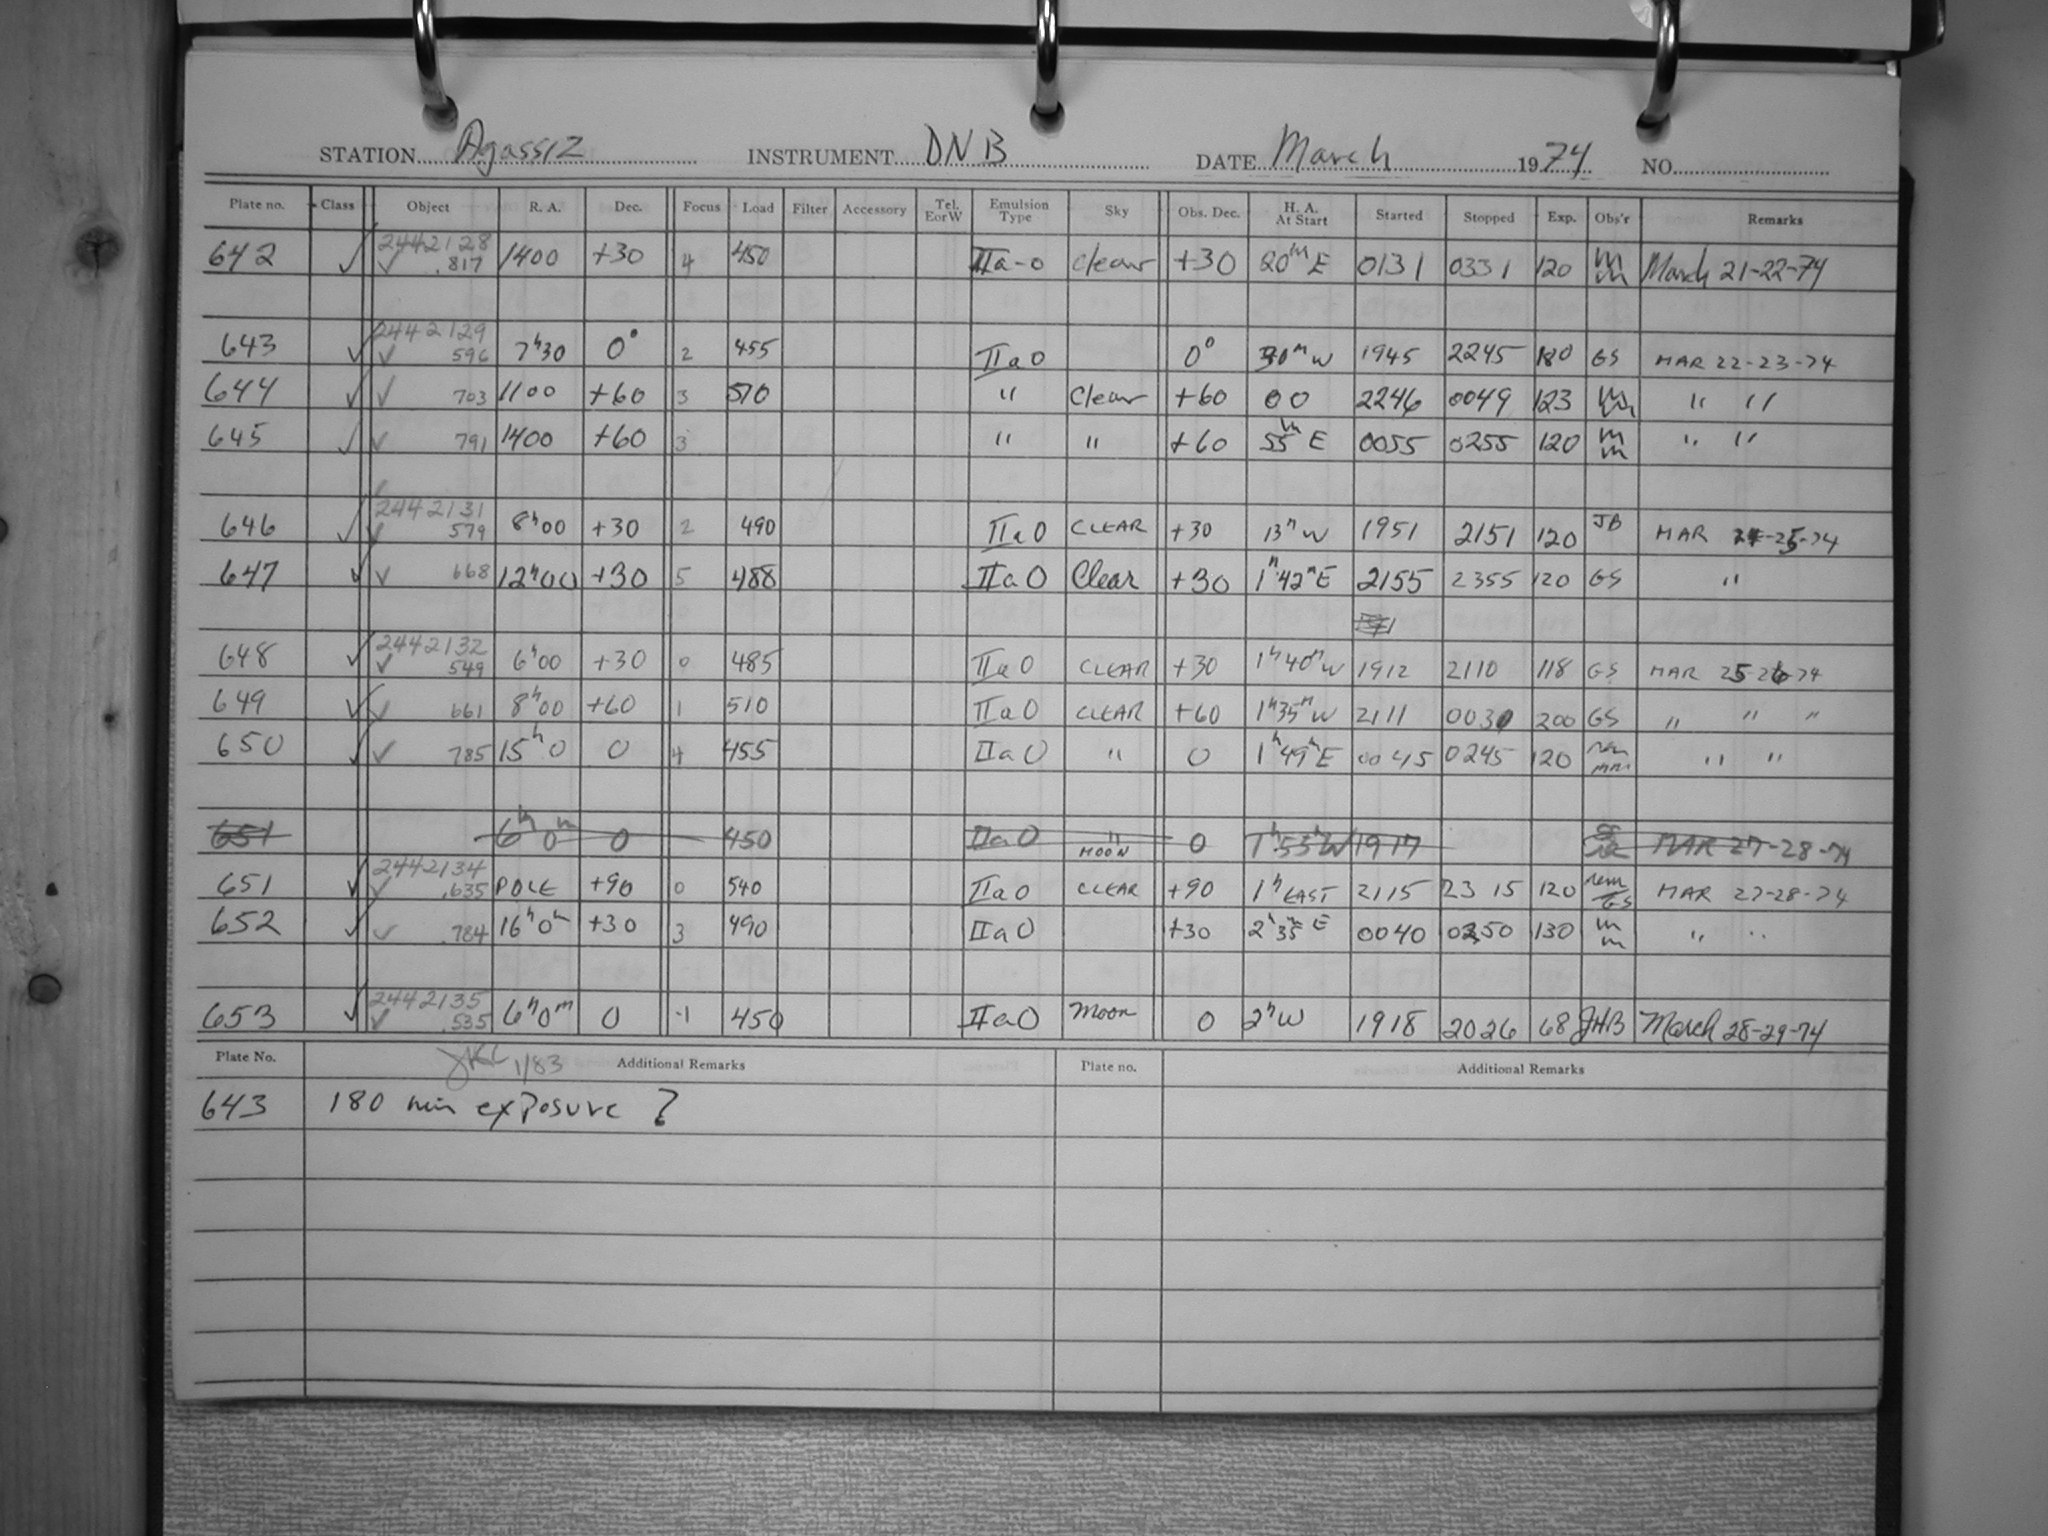 STATION Agassiz INSTRUMENT DNB DATE March 1974 NO.
Plate no. Class Object R. A. Dec. Focus Load Filter Accessory Tel. E or W Emulsion Type Sky Obs. Dec. H. A. At Start Started Stopped Exp. Obs'r Remarks
2442128
642 ✓ ✓ .817 1400 +30 4 450 IIa-O clear +30 20m E 0131 0331 120 March 21-22-74
2442129
643 ✓ ✓ 596 7h30 0° 2 455 IIaO 0° 30m W 1945 2245 180 GS MAR 22-23-74
644 ✓ ✓ 703 1100 +60 3 Clear +60 00 2246 0049 123 " "
645 ✓ ✓ 791 1400 +60 3 " " +60 55m E 0055 0255 120 " "
2442131
646 ✓ ✓ 579 8h00 +30 2 490 IIaO CLEAR +30 13m W 1951 2151 120 JB MAR 24-25-74
647 ✓ ✓ 668 12h00 +30 5 488 IIaO Clear +30 1h42m E 2155 2355 120 GS "
2442132
648 ✓ ✓ 549 6h00 +30 0 485 IIaO CLEAR +30 1h40m W 1912 2110 118 GS MAR 25-26-74
649 ✓ ✓ 661 8h00 +60 1 510 IIaO CLEAR +60 1h35m W 2111 0030 200 GS " " "
650 ✓ ✓ 785 15h0 0 4 455 IIaO " 0 1h49m E 0045 0245 120 " "
651 6h0m 0 450 IIaO " 0 1h53m W 1917 MAR 27-28-74
2442134 MOON
651 ✓ ✓ .635 POLE +90 0 540 IIaO CLEAR +90 1h EAST 2115 2315 120 rem GS MAR 27-28-74
652 ✓ ✓ .784 16h0m +30 3 490 IIaO +30 2h35m E 0040 0250 130 " "
2442135
653 ✓ ✓ .535 6h0m 0 -1 450 IIaO Moon 0 2h W 1918 2026 68 JHB March 28-29-74
Plate No. 1/83 Additional Remarks Plate no. Additional Remarks
643 180 min exposure ?